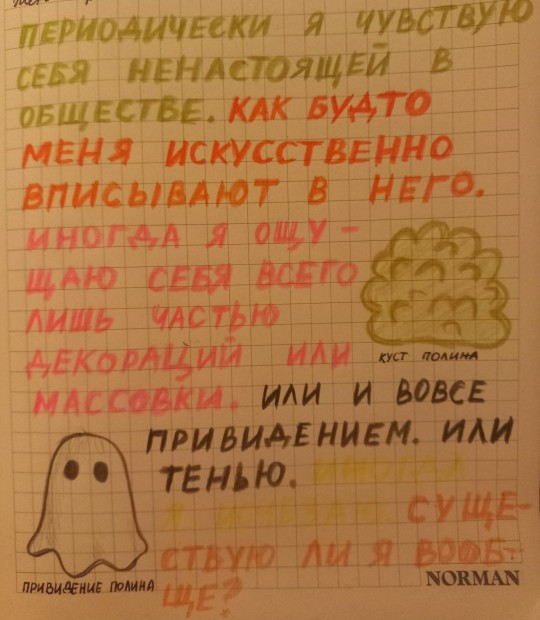 ПЕРИОДИЧЕСКИ Я ЧУВСТВУЮ
СЕБЯ НЕНАСТОЯЩЕЙ В
ОБЩЕСТВЕ. КАК БУДТО
МЕНЯ ИСКУССТВЕННО
ВПИСЫВАЮТ В НЕГО.
ИНОГДА Я ОЩУ-
ЩАЮ СЕБЯ ВСЕГО
ЛИШЬ ЧАСТЬЮ
ДЕКОРАЦИЙ ИЛИ
КУСТ ПОЛИНА
МАССОВКИ. ИЛИ И ВОВСЕ
ПРИВИДЕНИЕМ. ИЛИ
ТЕНЬЮ. ИНОГДА
Я ИСЧЕЗАЮ. СУЩЕ-
СТВУЮ ЛИ Я ВООБ-
ЩЕ?
ПРИВИДЕНИЕ ПОЛИНА
NORMAN